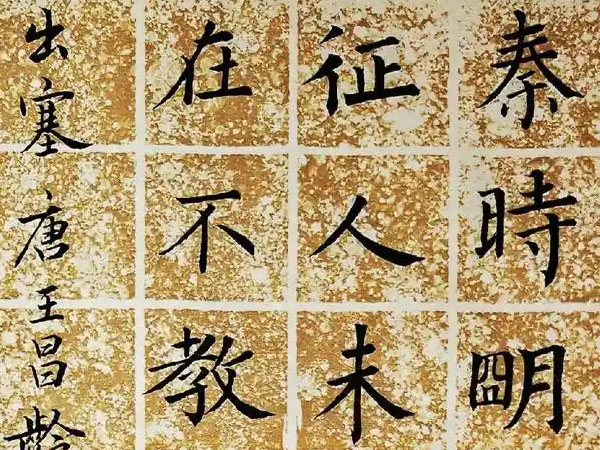 秦時朙
征人未
在不教
出塞 唐王昌齡